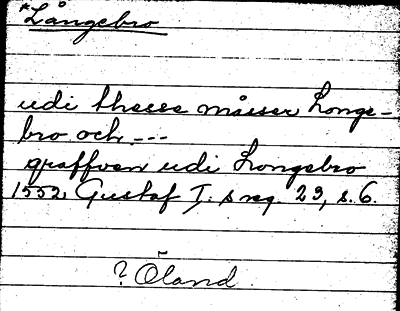 *Långebro
udi thesse måsser Longe-
bro och ---
graffven udi Longebro
1552 Gustaf I:s reg. 23, s. 6.
? Öland.